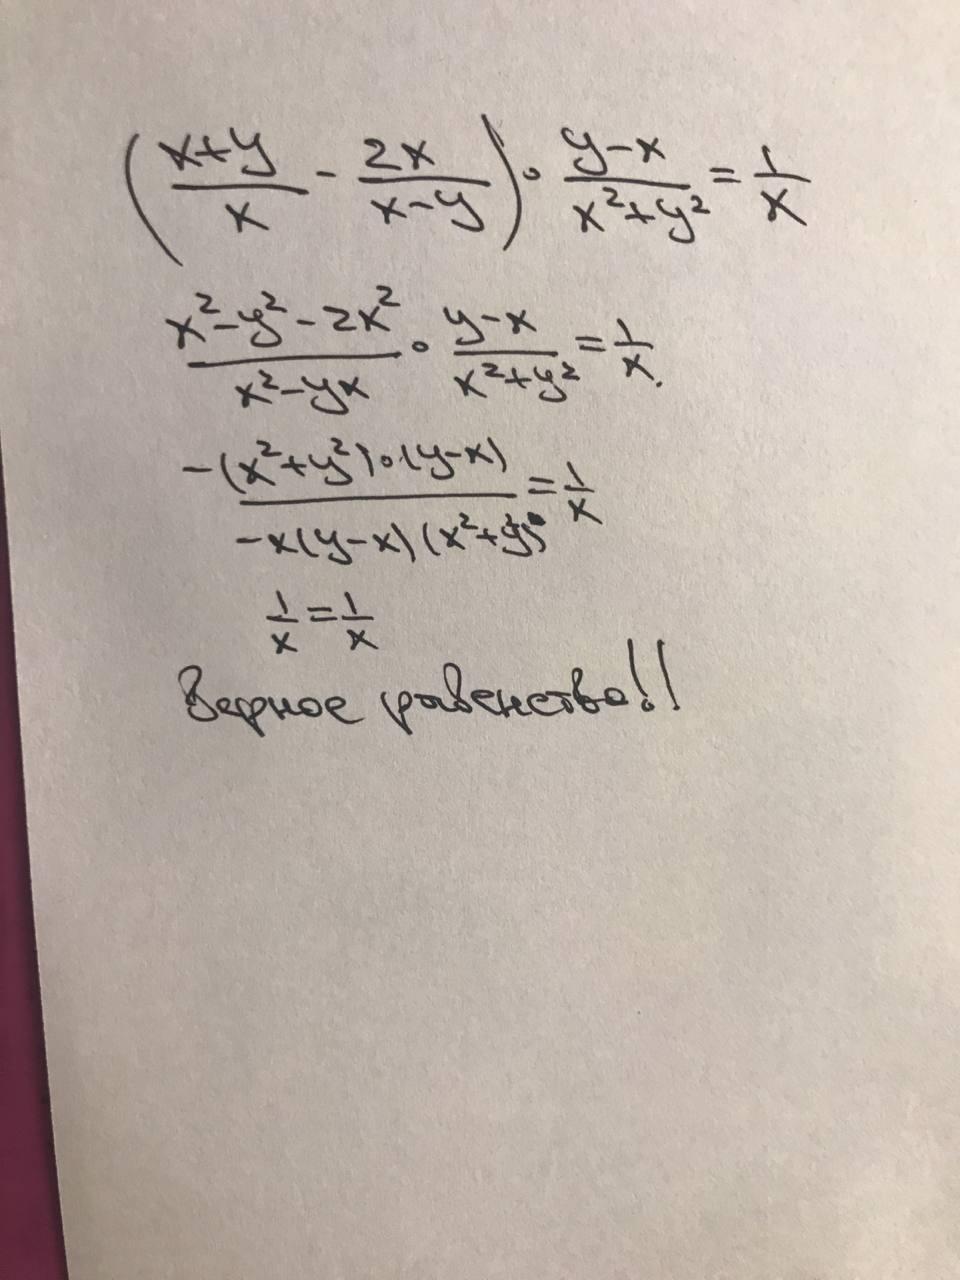 (x+y/x - 2x/x-y) · y-x/x²+y² = 1/x
x²-y²-2x²/x²-yx · y-x/x²+y² = 1/x.
-(x²+y²)·(y-x)/-x(y-x)(x²+y²) = 1/x
1/x = 1/x
Верное равенство!!